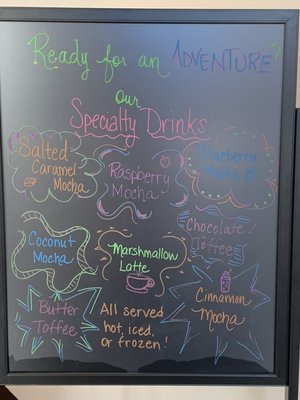 Ready for an ADVENTURE?
Our
Specialty Drinks
Salted
Caramel
Mocha
Raspberry
Mocha
Blueberry
Mocha
Coconut
Mocha
Marshmallow
Latte
Chocolate
Toffee
Butter
Toffee
All served
hot, iced,
or frozen!
Cinnamon
Mocha